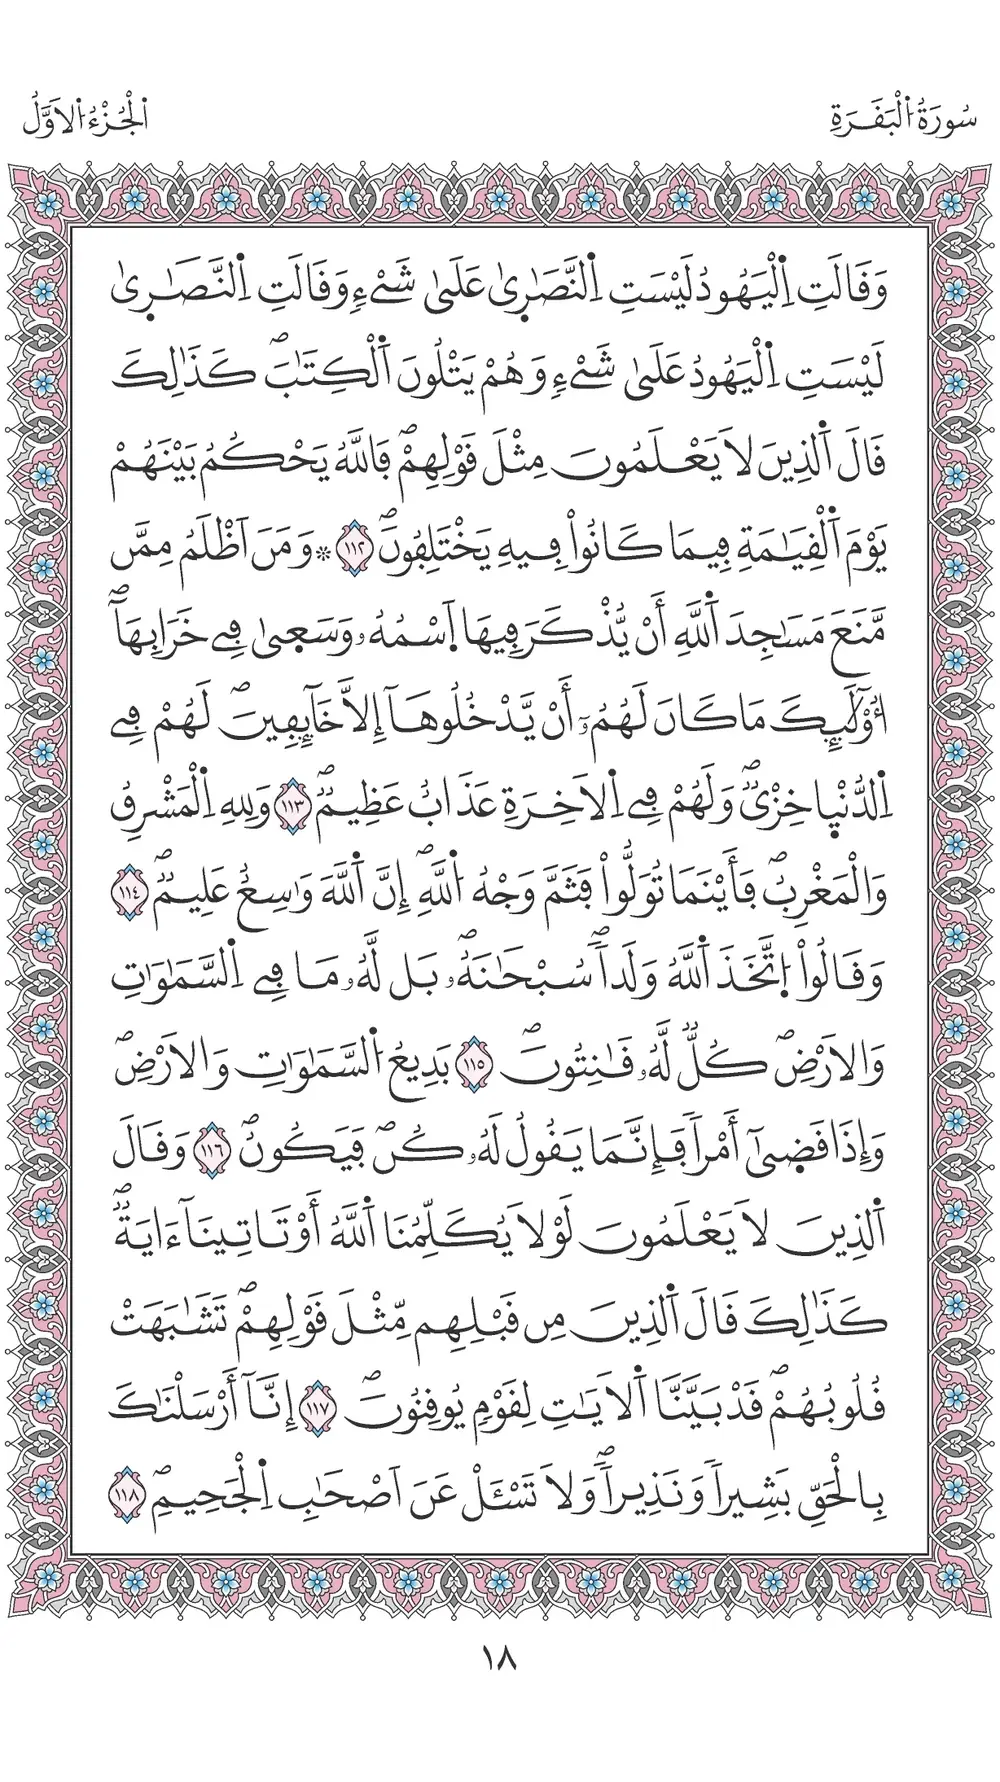 سُورَةُ اُ۬لْبَقَرَةِ
اَ۬لْجُزْءُ اُ۬لَاوَّلُ
وَقَالَتِ اِ۬لْيَهُودُ لَيْسَتِ اِ۬لنَّصَٰر۪يٰ عَلَىٰ شَےْءٖ وَقَالَتِ اِ۬لنَّصَٰر۪يٰ
لَيْسَتِ اِ۬لْيَهُودُ عَلَىٰ شَےْءٖ وَهُمْ يَتْلُونَ اَ۬لْكِتَٰبَۖ كَذَٰلِكَ
قَالَ اَ۬لذِينَ لَا يَعْلَمُونَ مِثْلَ قَوْلِهِمْۖ فَاللَّهُ يَحْكُمُ بَيْنَهُمْ
يَوْمَ اَ۬لْقِيَٰمَةِ فِيمَا كَانُواْ فِيهِ يَخْتَلِفُونَۖ ١١٢ ۞ وَمَنَ اَظْلَمُ مِمَّن
مَّنَعَ مَسَٰجِدَ اَ۬للَّهِ أَنْ يُّذْكَرَ فِيهَا اَ۪سْمُهُۥ وَسَع۪يٰ فِے خَرَابِهَاۖ
أُوْلَٰٓئِكَ مَا كَانَ لَهُمُۥٓ أَنْ يَّدْخُلُوهَآ إِلَّا خَآئِفِينَۖ لَهُمْ فِے
اِ۬لدُّنْي۪ا خِزْيٞۖ وَلَهُمْ فِے اِ۬لَاخِرَةِ عَذَابٌ عَظِيمٞۖ ١١٣ وَلِلهِ اِ۬لْمَشْرِقُ
وَالْمَغْرِبُۖ فَأَيْنَمَا تُوَلُّواْ فَثَمَّ وَجْهُ اُ۬للَّهِۖ إِنَّ اَ۬للَّهَ وَٰسِعٌ عَلِيمٞۖ ١١٤
وَقَالُواْ اُ۪تَّخَذَ اَ۬للَّهُ وَلَداٗۖ سُبْحَٰنَهُۥۖ بَل لَّهُۥ مَا فِے اِ۬لسَّمَٰوَٰتِ
وَالَارْضِۖ كُلّٞ لَّهُۥ قَٰنِتُونَۖ ١١٥ بَدِيعُ اُ۬لسَّمَٰوَٰتِ وَالَارْضِۖ
وَإِذَا قَض۪يٰٓ أَمْراٗ فَإِنَّمَا يَقُولُ لَهُۥ كُنۖ فَيَكُونُۖ ١١٦ وَقَالَ
اَ۬لذِينَ لَا يَعْلَمُونَ لَوْلَا يُكَلِّمُنَا اَ۬للَّهُ أَوْ تَاتِينَآ ءَايَةٞۖ
كَذَٰلِكَ قَالَ اَ۬لذِينَ مِن قَبْلِهِم مِّثْلَ قَوْلِهِمْۖ تَشَٰبَهَتْ
قُلُوبُهُمْۖ قَدْ بَيَّنَّا اَ۬لَايَٰتِ لِقَوْمٖ يُوقِنُونَۖ ١١٧ إِنَّآ أَرْسَلْنَٰكَ
بِالْحَقِّ بَشِيراٗ وَنَذِيراٗۖ وَلَا تَسْـَٔلْ عَنَ اَصْحَٰبِ اِ۬لْجَحِيمِۖ ١١٨
١٨